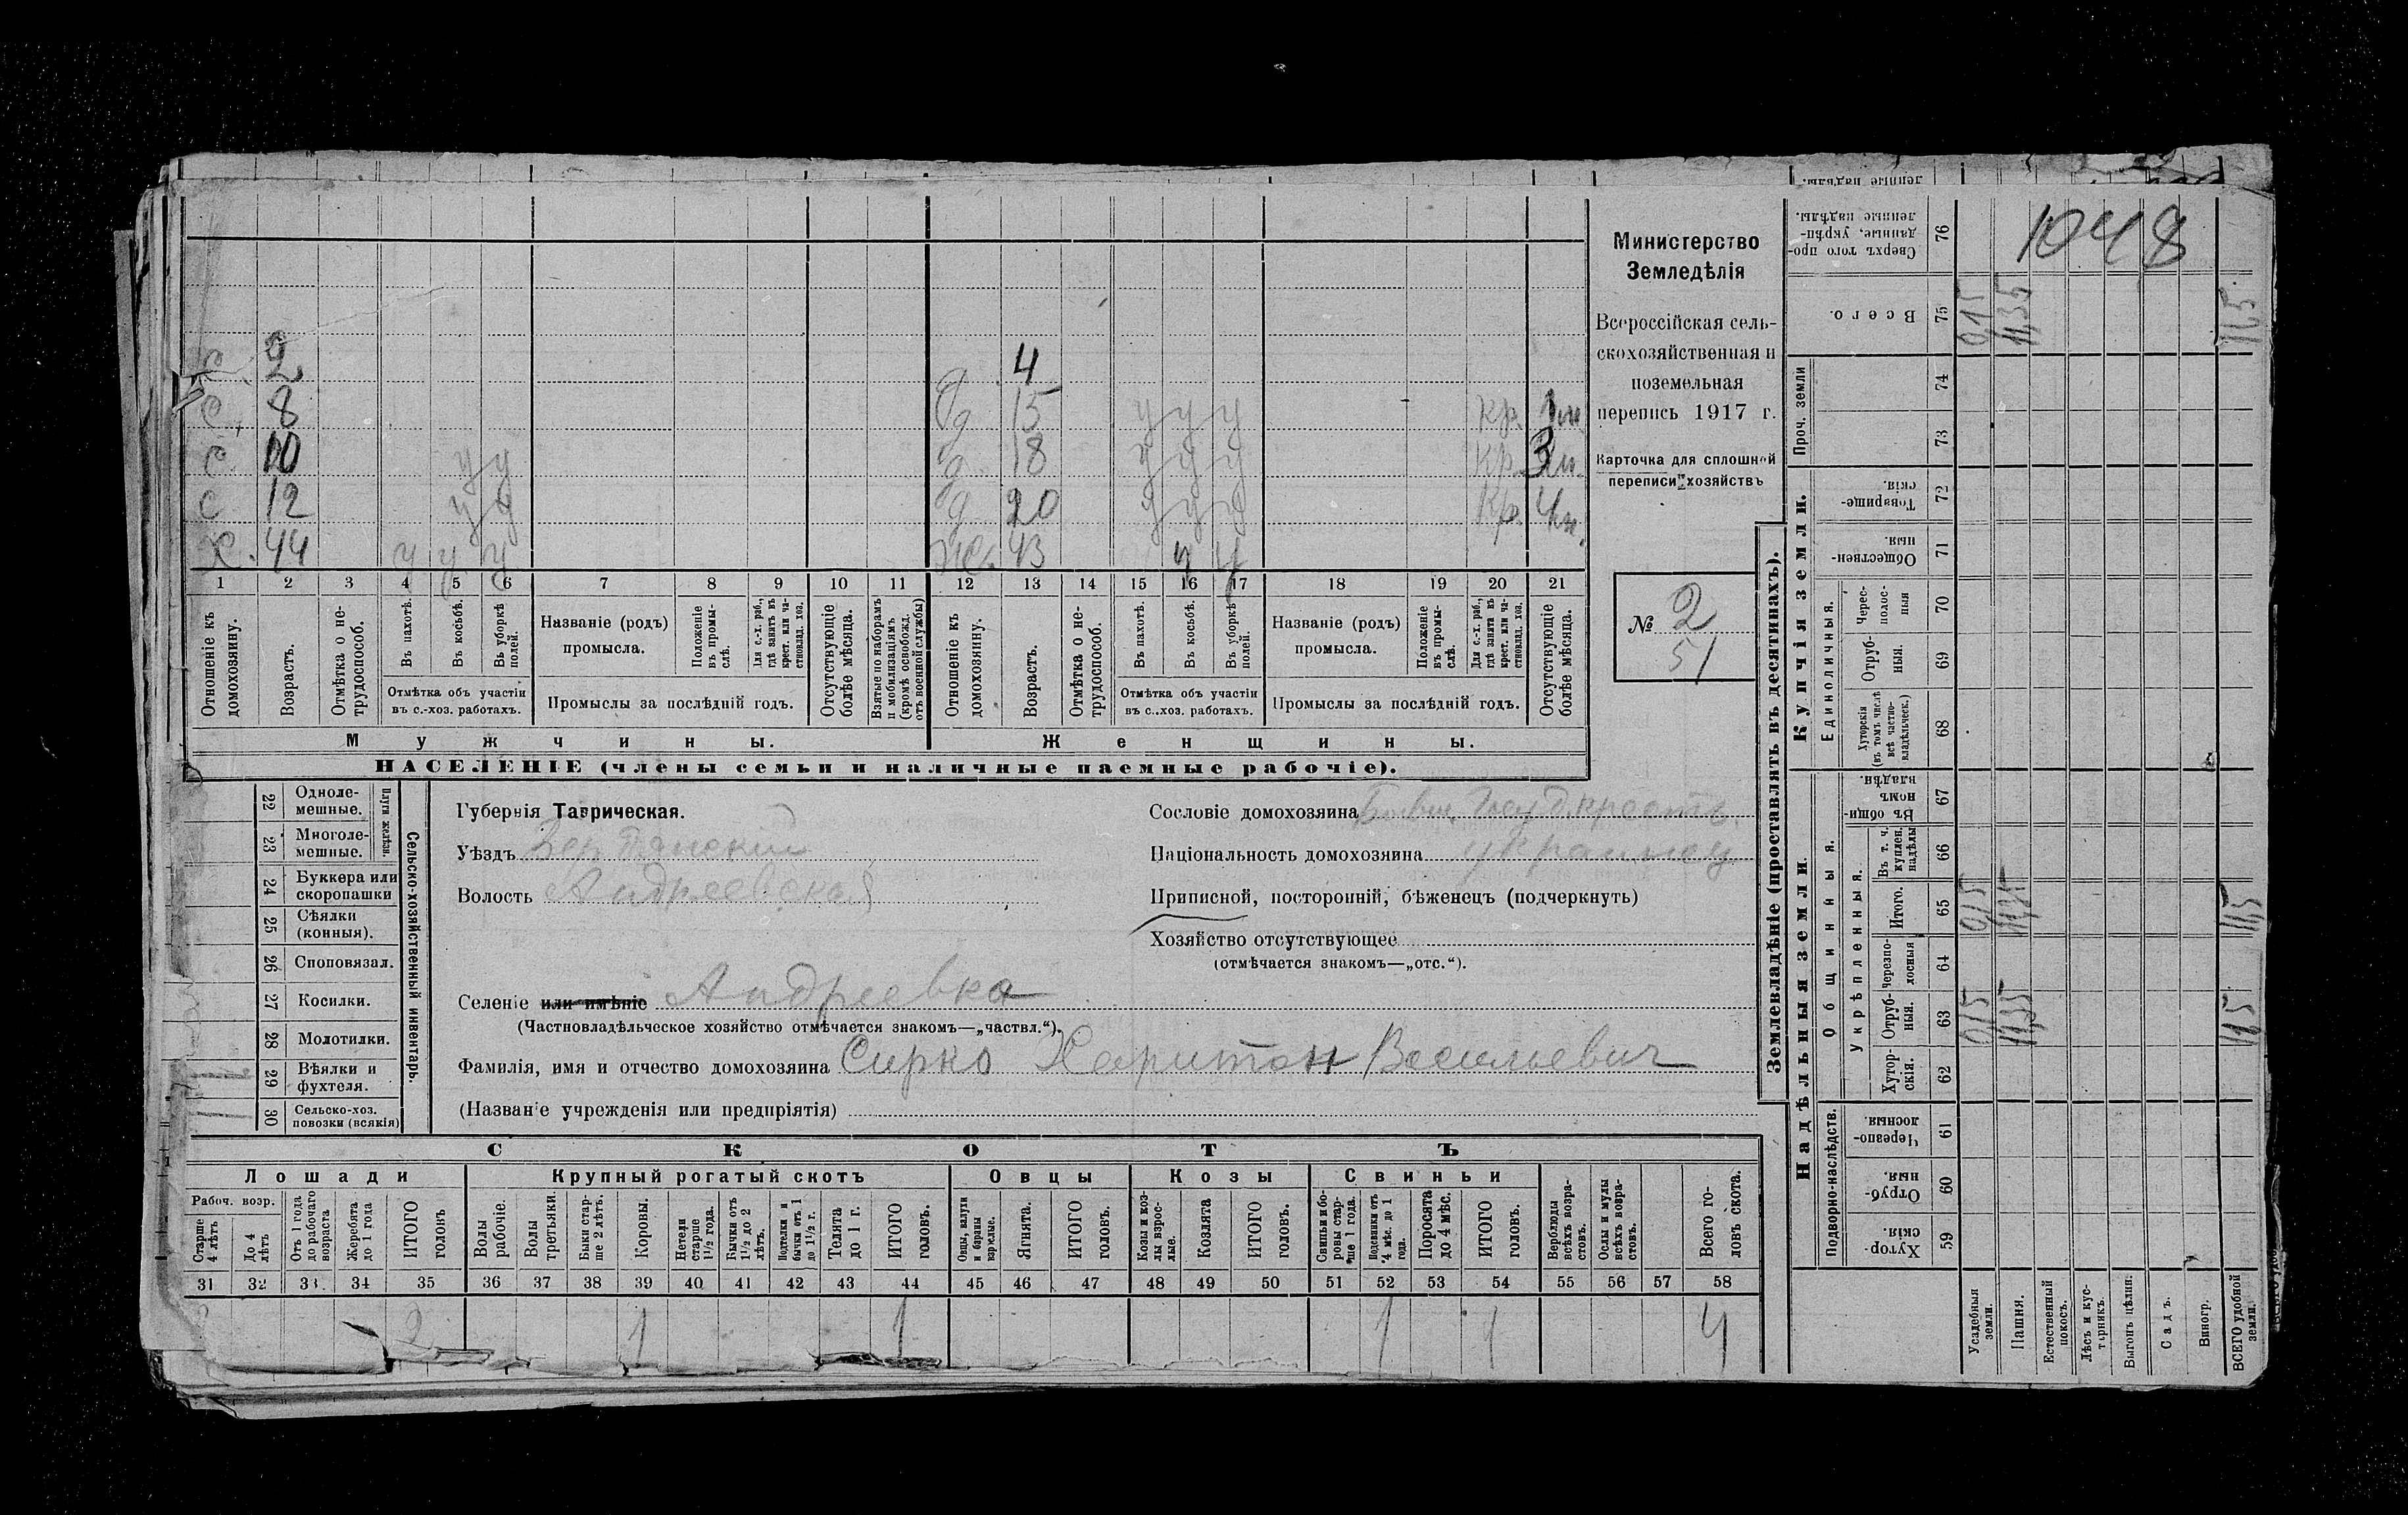 с 2
д 4
с 8
д 15 у у у кр. 1 м.
с 10 у у
д 18 у у у кр. 3 м.
с 12 у у
д 20 у у у кр. 4 м.
х. 44 у у у
ж. 43 у у
1 2 3 4 5 6 7 8 9 10 11 12 13 14 15 16 17 18 19 20 21
Отношеніе къ домохозяину.
Возрастъ.
Отмѣтка о не-трудоспособ.
Въ пахотѣ.
Въ косьбѣ.
Въ уборкѣ полей.
Отмѣтка объ участіи
въ с.-хоз. работахъ.
Названіе (родъ)
промысла.
Положеніе въ промы-слѣ.
Для с.-х. раб., гдѣ занятъ въ крест. или ча-стновлад. хоз.
Промыслы за послѣдній годъ.
Отсутствующіе болѣе мѣсяца.
Взятые по наборамъ и мобилизаціямъ (кромѣ освобожд. отъ военной службы)
Отношеніе къ домохозяину.
Возрастъ.
Отмѣтка о не-трудоспособ.
Въ пахотѣ.
Въ косьбѣ.
Въ уборкѣ полей.
Отмѣтка объ участіи
въ с..хоз. работахъ.
Названіе (родъ)
промысла.
Положеніе въ промы-слѣ.
Для с.-х. раб., гдѣ занята въ крест. или ча-стновлад. хоз.
Промыслы за послѣдній годъ.
Отсутствующіе болѣе мѣсяца.
Мужчины.
Женщины.
НАСЕЛЕНІЕ (члены семьи и наличные наемные рабочіе).
Министерство
Земледѣлія
Всероссійская сель-
скохозяйственная и
поземельная
перепись 1917 г.
Карточка для сплошной
переписи хозяйствъ
№ 2
51
22 Одноле-мешные.
23 Многоле-мешные.
Плуги желѣзн.
24 Буккера или скоропашки
25 Сѣялки (конныя).
26 Споповязал.
27 Косилки.
28 Молотилки.
29 Вѣялки и фухтеля.
30 Сельско-хоз. повозки (всякія)
Сельско-хозяйственный инвентарь.
Губернія Таврическая.
Уѣздъ Бердянский
Волость Андреевская
Селеніе или имѣніе Андреевка
(Частновладѣльческое хозяйство отмѣчается знакомъ—„частвл.“).
Фамилія, имя и отчество домохозяина Сирко Харитон Васильевич
(Названіе учрежденія или предпріятія)
Сословіе домохозяина Бывш. Госуд. крестн.
Національность домохозяина украинец
Приписной, посторонній, бѣженецъ (подчеркнуть)
Хозяйство отсутствующее
(отмѣчается знакомъ—„отс.“).
СКОТЪ
Лошади
Крупный рогатый скотъ
Овцы
Козы
Свиньи
Рабоч. возр.
Старше 4 лѣтъ
До 4 лѣтъ
Отъ 1 года до рабочаго возраста
Жеребята до 1 года
ИТОГО головъ
Волы рабочіе.
Волы третьяки.
Быки стар-ше 2 лѣтъ.
Коровы.
Нетели старше 1½ года.
Бычки отъ 1½ до 2 лѣтъ.
Подтелки и бычки отъ 1 до 1½ г.
Телята до 1 г.
ИТОГО головъ.
Овцы, валухи и бараны взрослые.
Ягнята.
ИТОГО головъ.
Козы и коз-лы взрос-лые.
Козлята
ИТОГО головъ.
Свиньи и бо-ровы стар-ше 1 года.
Подсвинки отъ 4 мѣс. до 1 года.
Поросята до 4 мѣс.
ИТОГО головъ.
Верблюды всѣхъ возра-стовъ.
Ослы и мулы всѣхъ возра-стовъ.
Всего го-ловъ скота.
31 32 33. 34 35 36 37 38 39 40 41 42 43 44 45 46 47 48 49 50 51 52 53 54 55 56 57 58
2 1 1 1 1 4
Землевладѣніе (проставлять въ десятинахъ).
1048
Сверхъ того про-данные, укрѣп-ленные надѣлы. 76
Всего. 75 0,15 11,35 11,5
Проч. земли
74
73
Купчія земли.
Товарище-скія. 72
Обществен-ныя. 71
Единоличныя.
Черес-полос-ныя 70
Отруб-ныя. 69
Хуторскія (въ томъ числѣ всѣ частно-владѣльческ.) 68
Надѣльныя земли.
Общинныя.
Въ общин-номъ владѣн. 67
Укрѣпленныя.
Въ т. ч. куплен. надѣлы 66
Итого. 65 0,15 11,35 11,5
Черезпо-лосныя 64
Отруб-ныя. 63 0,15 11,35 11,5
Хутор-скія. 62
Подворно-наслѣдств.
Черезпо-лосныя. 61
Отруб-ныя. 60
Хутор-скія. 59
Усадебныя земли.
Пашня.
Естественный покосъ.
Лѣсъ и кус-тарникъ.
Выгонъ цѣлин.
Садъ.
Виногр.
ВСЕГО удобной земли.